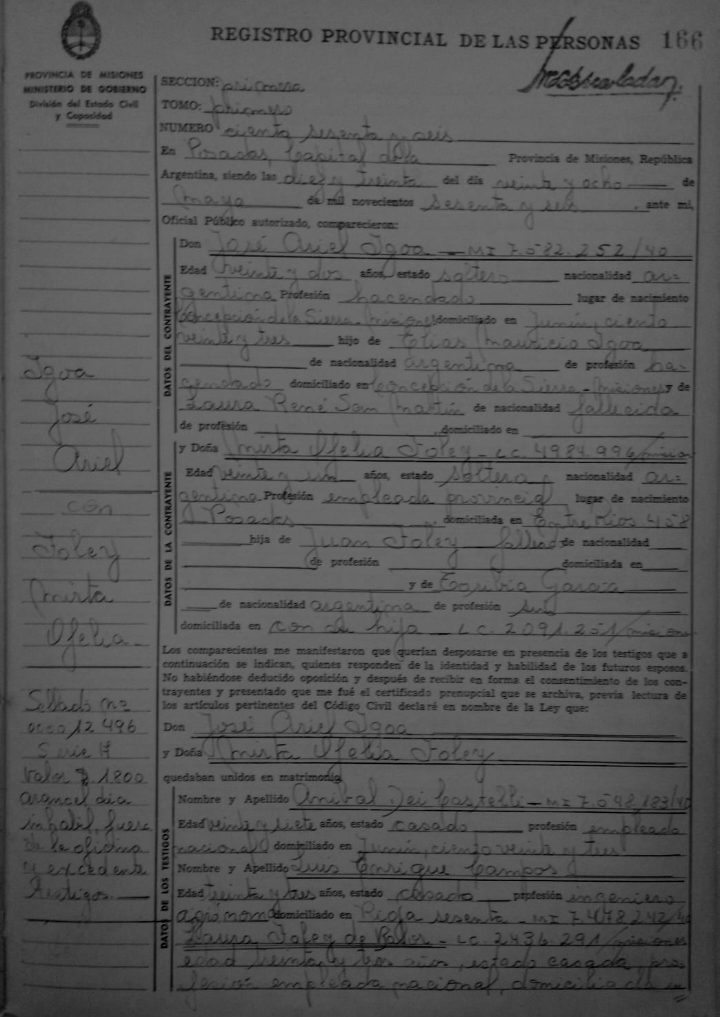 REGISTRO PROVINCIAL DE LAS PERSONAS 166
PROVINCIA DE MISIONES
MINISTERIO DE GOBIERNO
División del Estado Civil
y Capacidad
Igoa
José
Ariel
con
Foley
Mirta
Ofelia
Sellado nº
12496
Serie H
Valor $ 1800
el día
inhabil, fuera
de la oficina
y excedente
testigos
SECCION: primera
TOMO: primero
NUMERO ciento sesenta y seis
En Posadas, Capital de la Provincia de Misiones, República
Argentina, siendo las diez y treinta del día veinte y ocho de
Mayo de mil novecientos sesenta y seis, ante mí,
Oficial Público autorizado, comparecieron:
DATOS DEL CONTRAYENTE
Don José Ariel Igoa - MI 7.582.252/40
Edad veinte y dos años, estado soltero nacionalidad ar-
gentina Profesión hacendado lugar de nacimiento
Concepción de la Sierra - Misiones domiciliado en Junín, ciento
veinte y tres hijo de Elías Mauricio Igoa
de nacionalidad argentina de profesión ha-
cendado domiciliado en Concepción de la Sierra - Misiones y de
Laura René San Martín de nacionalidad fallecida
de profesión domiciliado en
DATOS DE LA CONTRAYENTE
y Doña Mirta Ofelia Foley - LC. 4984.996/
Edad veinte y un años, estado soltera nacionalidad ar-
gentina Profesión empleada provincial lugar de nacimiento
Posadas domiciliada en Entre Ríos 458
hija de Juan Foley de nacionalidad
de profesión domiciliada en
y de Toribia García
de nacionalidad argentina de profesión
domiciliada en con la hija - LC. 2091.251/
Los comparecientes me manifestaron que querían desposarse en presencia de los testigos que a
continuación se indican, quienes responden de la identidad y habilidad de los futuros esposos.
No habiéndose deducido oposición y después de recibir en forma el consentimiento de los con-
trayentes y presentado que me fué el certificado prenupcial que se archiva, previa lectura de
los artículos pertinentes del Código Civil declaré en nombre de la Ley que:
Don José Ariel Igoa
y Doña Mirta Ofelia Foley
quedaban unidos en matrimonio
DATOS DE LOS TESTIGOS
Nombre y Apellido Anibal Dei Castelli - MI 7.598.183/40
Edad veinte y siete años, estado casado profesión empleado
nacional domiciliado en Junín, ciento veinte y tres
Nombre y Apellido Luis Enrique Campos
Edad treinta y tres años, estado casado profesión ingeniero
agrónomo domiciliado en Rioja sesenta - MI 7.478.242/
Laura Foley de - LC. 2436.291/
edad treinta y tres años, estado casada, pro-
fesión empleada nacional, domiciliada